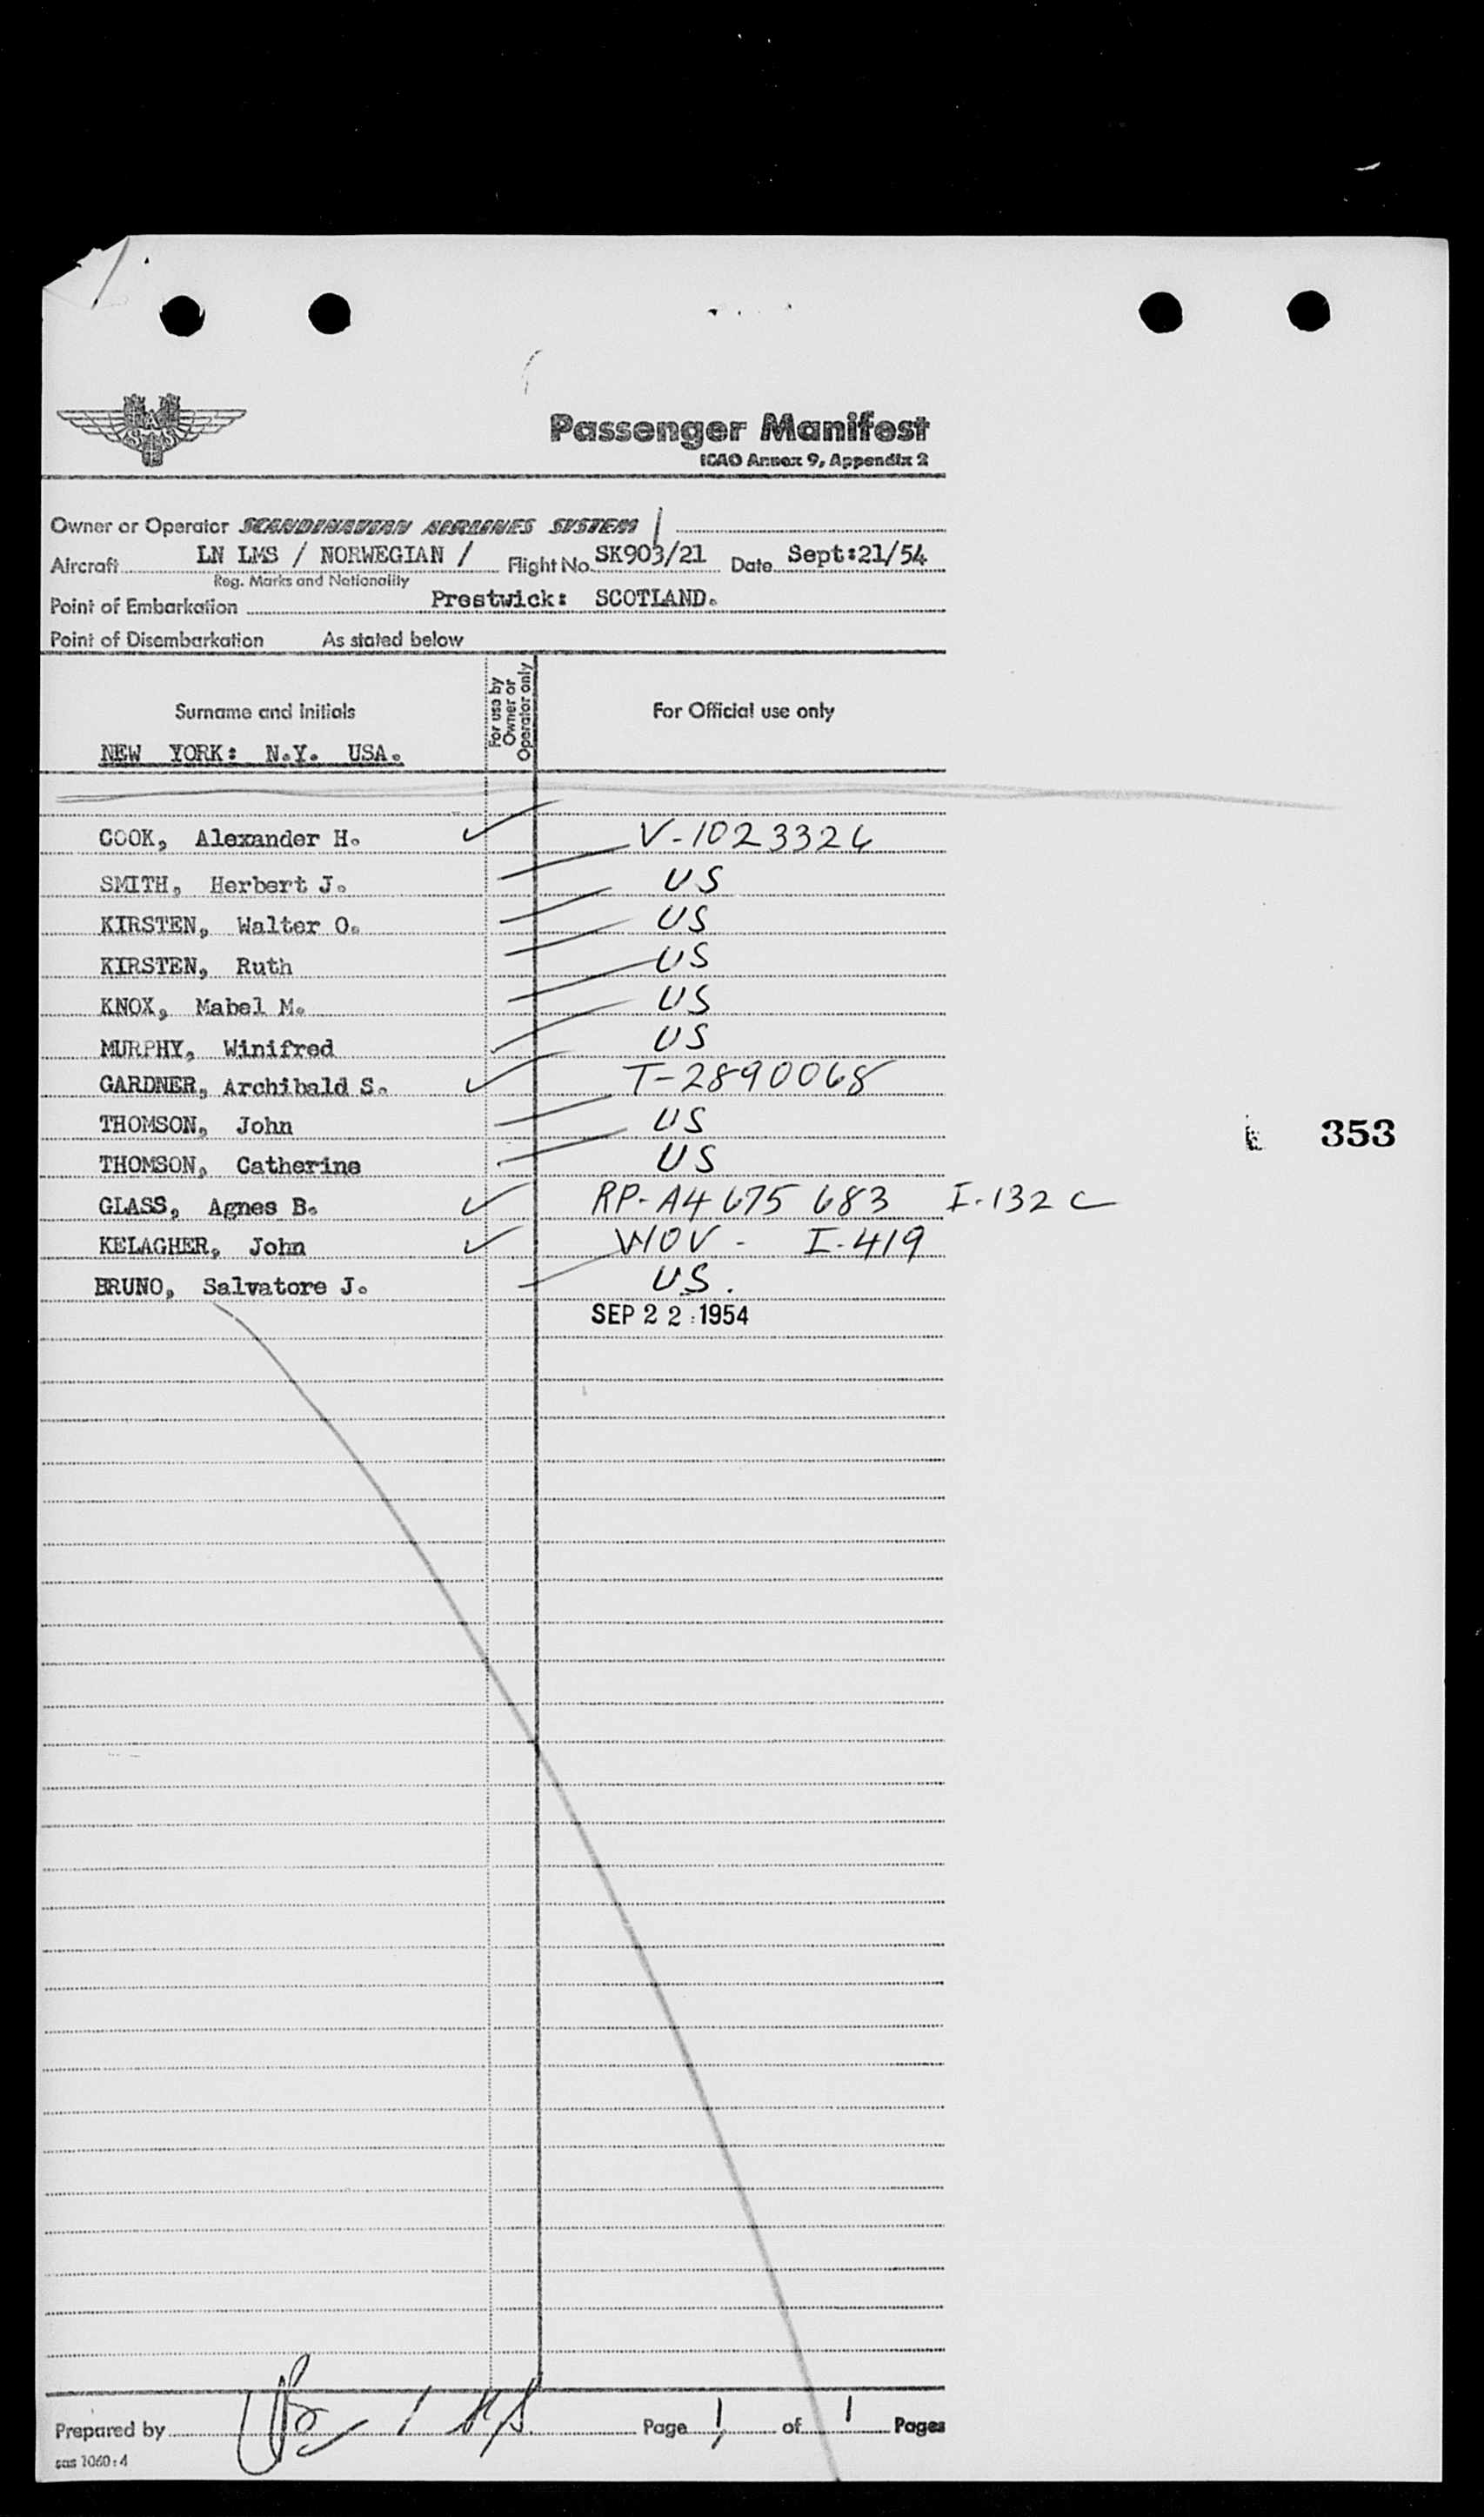 SAS
Passenger Manifest
ICAO Annex 9, Appendix 2
Owner or Operator SCANDINAVIAN AIRLINES SYSTEM /
Aircraft LN LMS / NORWEGIAN / Flight No. SK903/21 Date Sept:21/54
Reg. Marks and Nationality
Point of Embarkation Prestwick: SCOTLAND.
Point of Disembarkation As stated below
Surname and Initials
For use by Owner or Operator only
For Official use only
NEW YORK: N.Y. USA.
COOK, Alexander H. V-1023326
SMITH, Herbert J. US
KIRSTEN, Walter O. US
KIRSTEN, Ruth US
KNOX, Mabel M. US
MURPHY, Winifred US
GARDNER, Archibald S. T-2890068
THOMSON, John US
353
THOMSON, Catherine US
GLASS, Agnes B. RP-A4675683 I-132C
KELAGHER, John WOV - I-419
BRUNO, Salvatore J. US.
SEP 22 1954
Prepared by Page 1 of 1 Pages
sas 1060:4